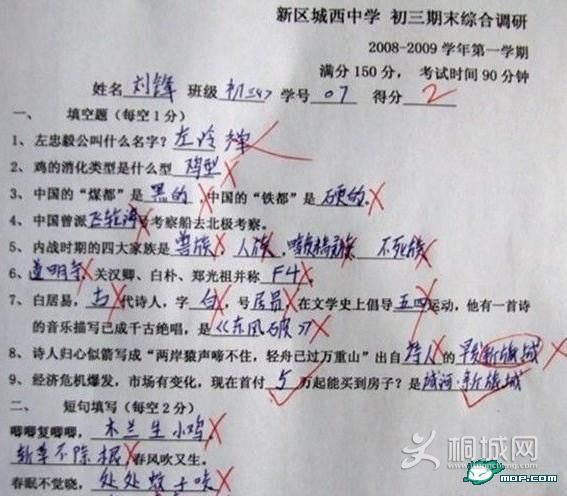 新区城西中学 初三期末综合调研
2008-2009学年第一学期
满分150分, 考试时间90分钟
姓名 刘锋 班级 初三(7) 学号 07 得分 2
一、 填空题(每空1分)
1、左忠毅公叫什么名字?左冷禅
2、鸡的消化类型是什么型 鸡型
3、中国的“煤都”是 黑的 ,中国的“铁都”是 硬的。
4、中国曾派 飞轮海 号考察船去北极考察。
5、内战时期的四大家族是 兽族,人族, 不死族
6、道明寺 关汉卿、白朴、郑光祖并称 F4
7、白居易, 古 代诗人,字 白 ,号 居易 在文学史上倡导 五四 运动,他有一首诗
的音乐描写已成千古绝唱,是《东风破》
8、诗人归心似箭写成“两岸猿声啼不住,轻舟已过万重山”出自 诗人 的 早发新旗城
9、经济危机爆发,市场有变化,现在首付 5 万起能买到房子?是 城河·新旗城
二、 短句填写(每空2分)
唧唧复唧唧, 木兰生小鸡
斩草不除根 春风吹又生.
春眠不觉晓, 处处蚊子咬
桐城网
www.itongcheng.com
mop.com